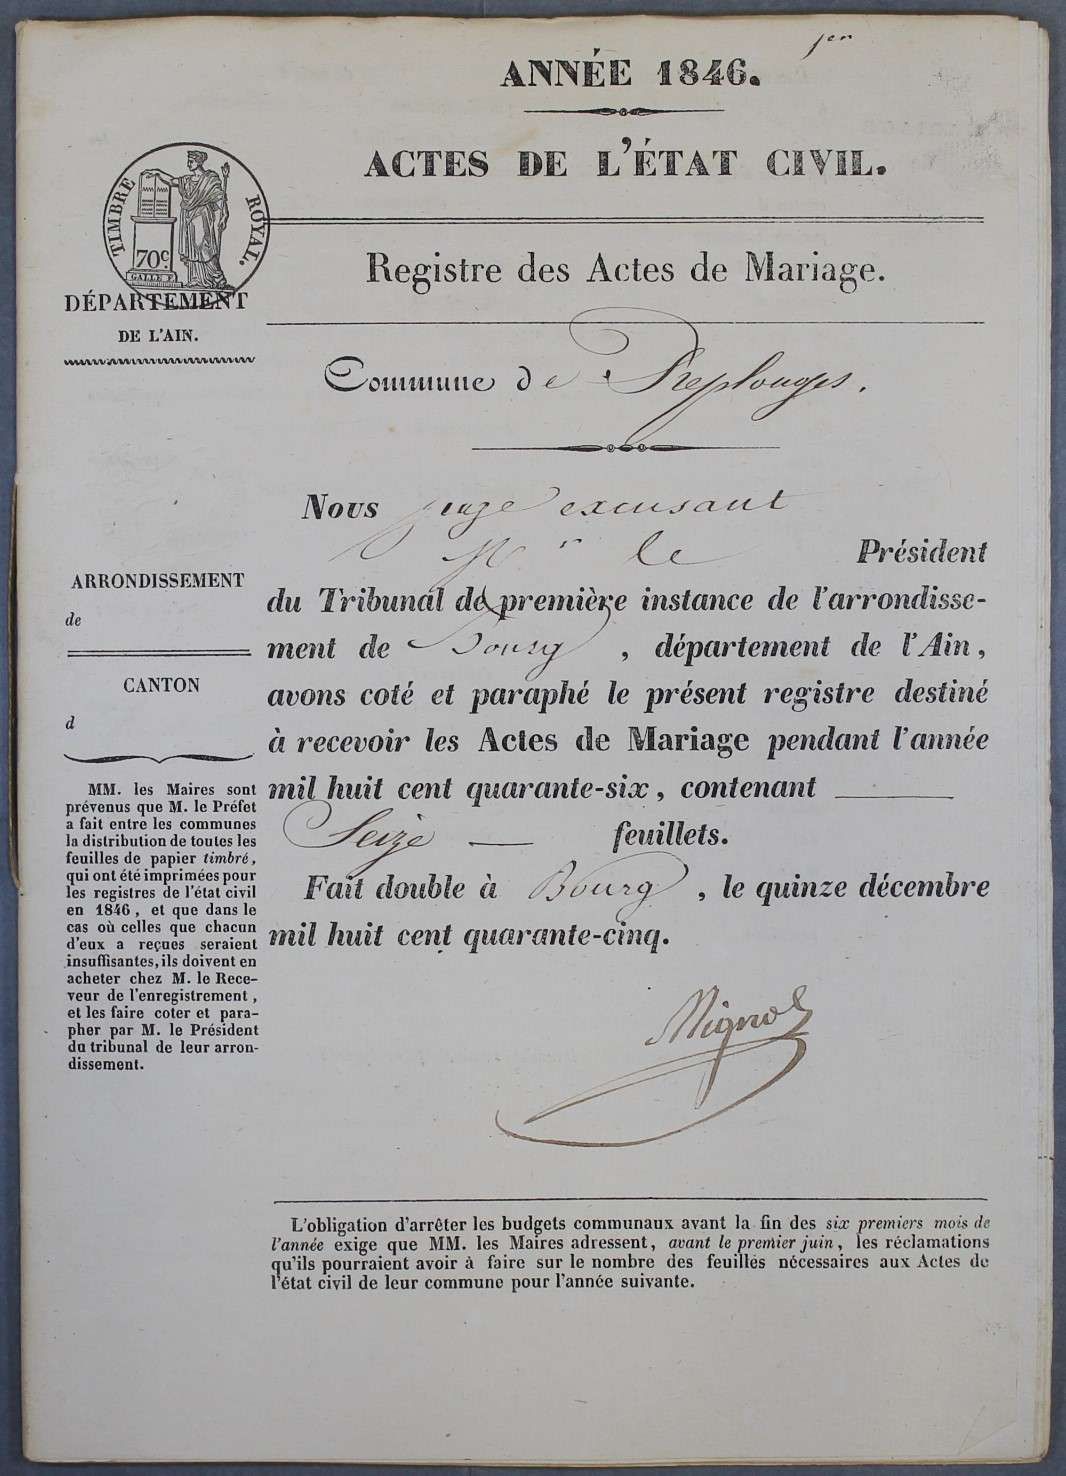 1er
ANNÉE 1846.
ACTES DE L'ÉTAT CIVIL.
TIMBRE ROYAL.
70c
GALLE F.
DÉPARTEMENT
DE L'AIN.
Registre des Actes de Mariage.
Commune de Replonges.
Nous juge excusant
Mr le Président
du Tribunal de première instance de l'arrondisse-
ment de Bourg, département de l'Ain,
avons coté et paraphé le présent registre destiné
à recevoir les Actes de Mariage pendant l'année
mil huit cent quarante-six, contenant
Seize feuillets.
Fait double à Bourg, le quinze décembre
mil huit cent quarante-cinq.
ARRONDISSEMENT
de
CANTON
d
MM. les Maires sont
prévenus que M. le Préfet
a fait entre les communes
la distribution de toutes les
feuilles de papier timbré,
qui ont été imprimées pour
les registres de l'état civil
en 1846, et que dans le
cas où celles que chacun
d'eux a reçues seraient
insuffisantes, ils doivent en
acheter chez M. le Rece-
veur de l'enregistrement,
et les faire coter et para-
pher par M. le Président
du tribunal de leur arron-
dissement.
L'obligation d'arrêter les budgets communaux avant la fin des six premiers mois de
l'année exige que MM. les Maires adressent, avant le premier juin, les réclamations
qu'ils pourraient avoir à faire sur le nombre des feuilles nécessaires aux Actes de
l'état civil de leur commune pour l'année suivante.